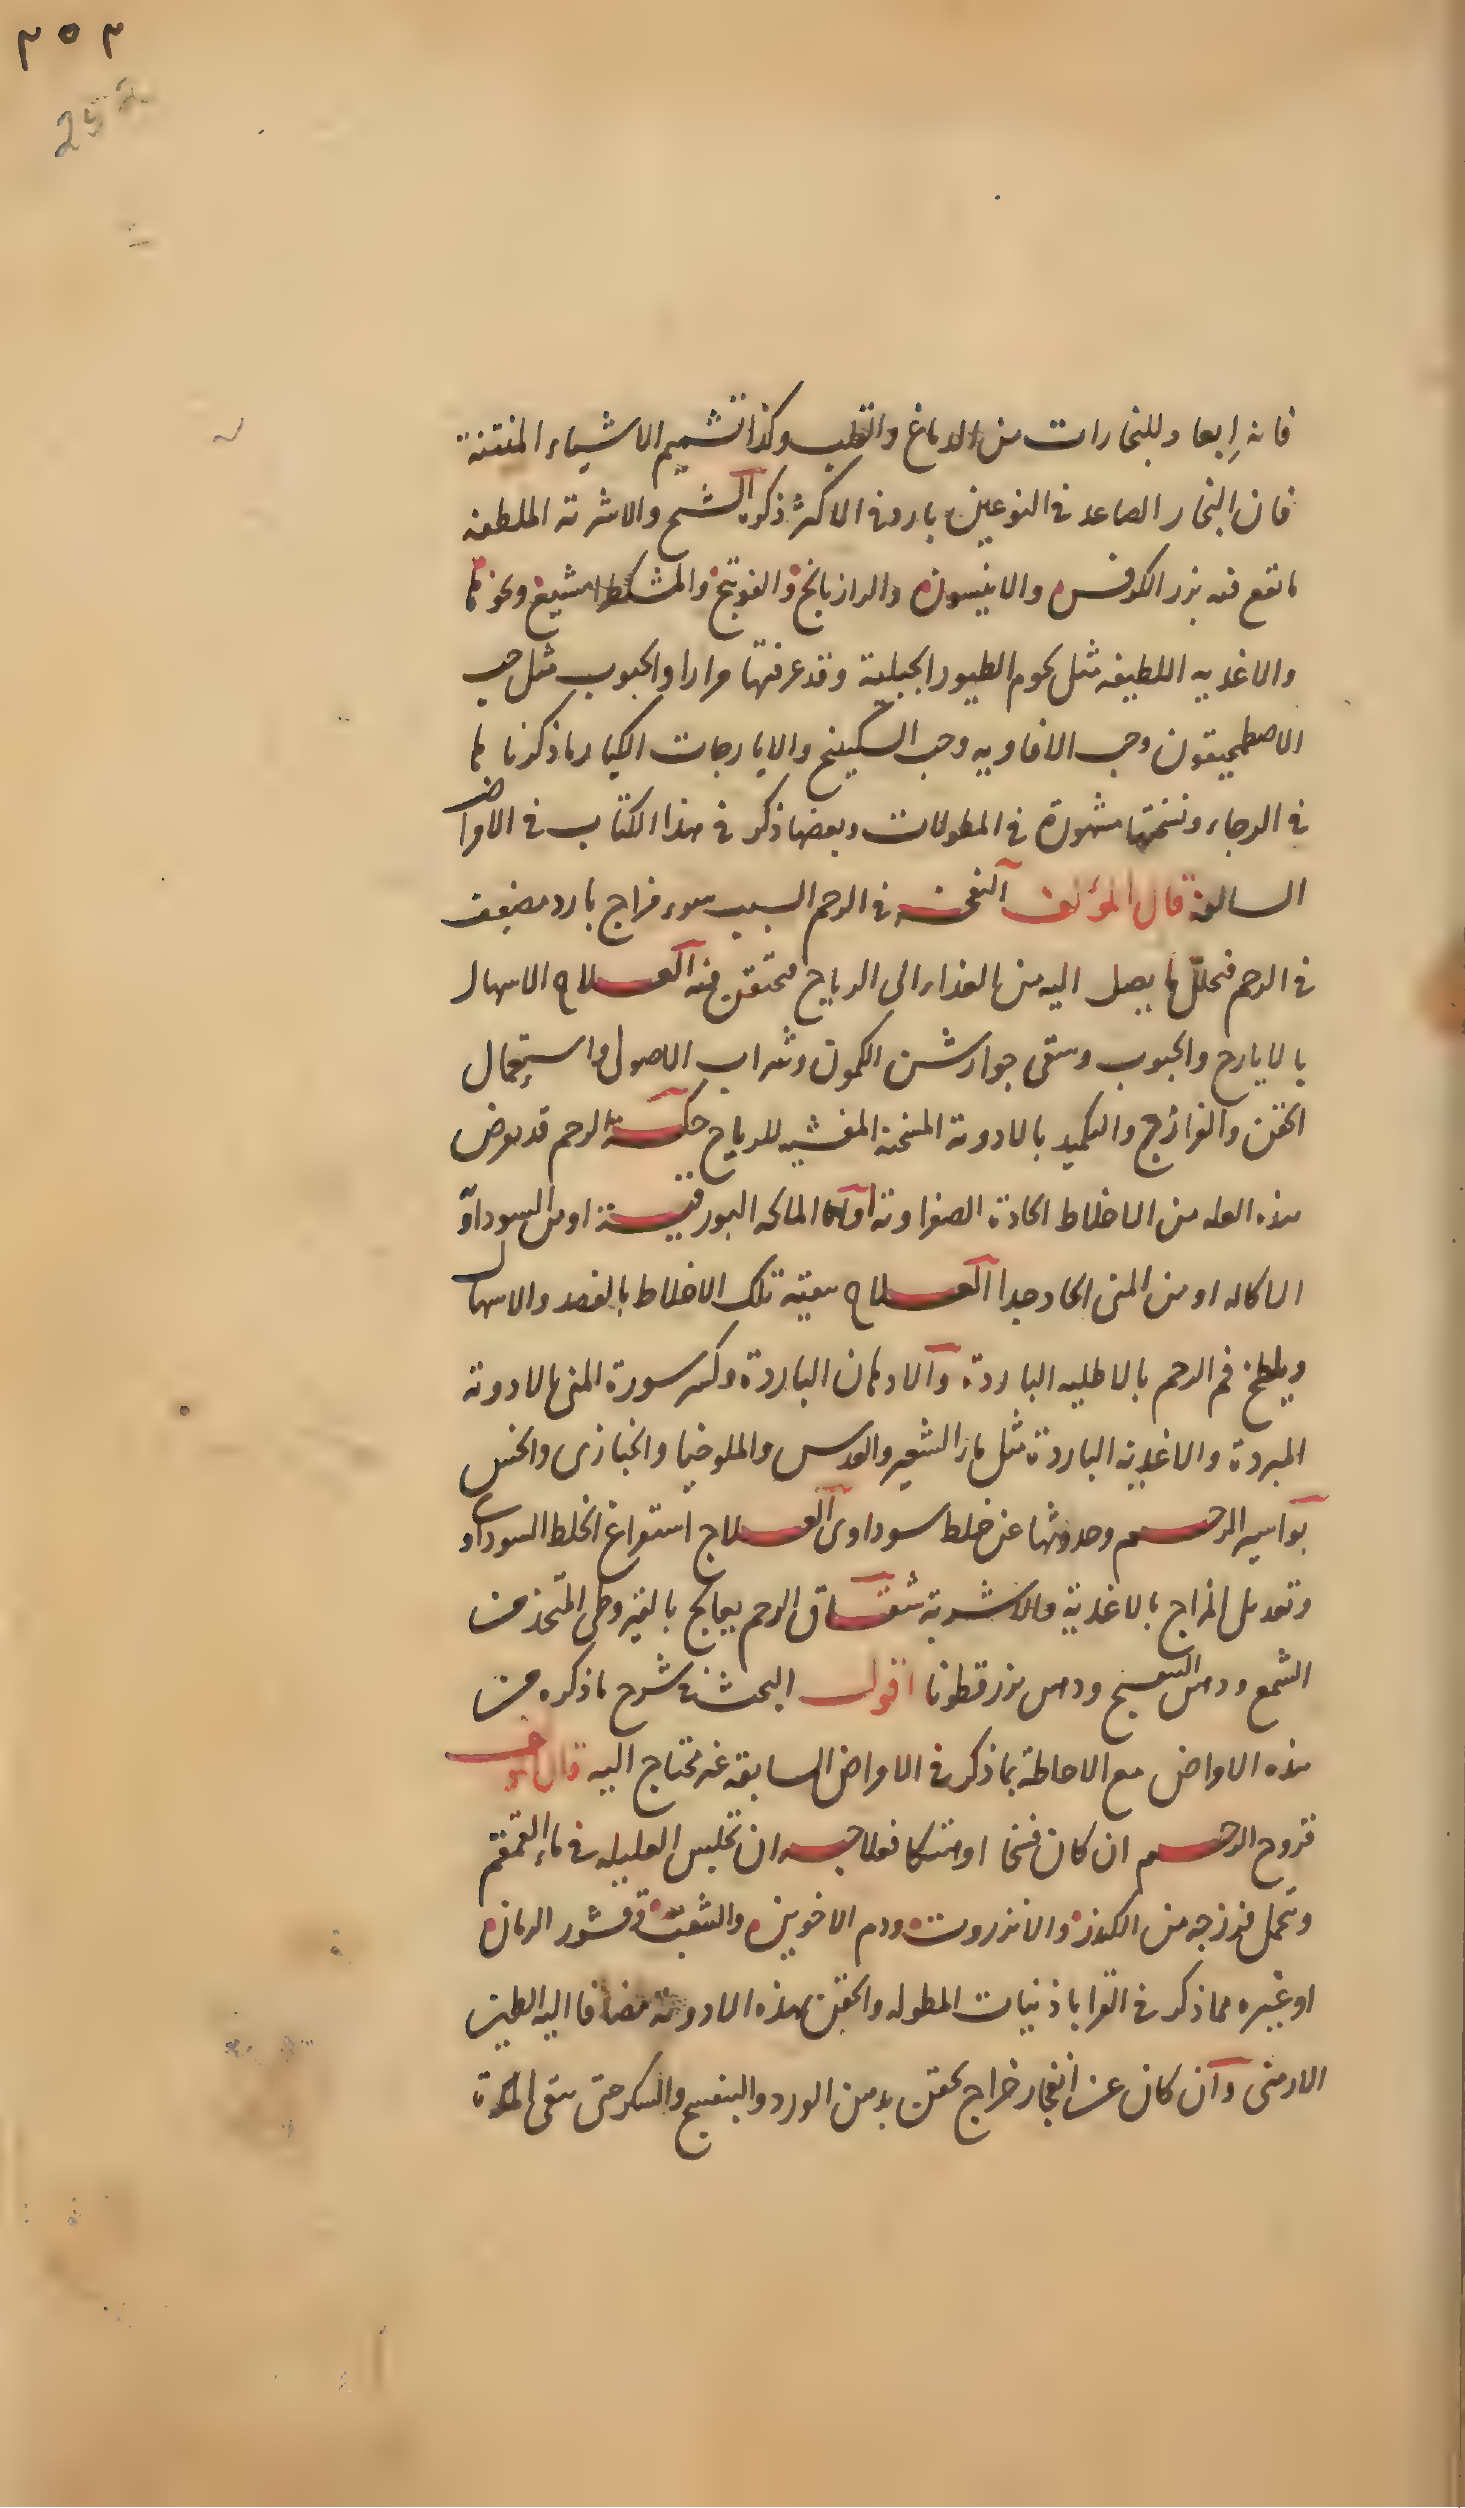 ٢٥٢
252
فانه ابعاد للبخارات من الدماغ والقلب وكذا تشميم الاشياء المنتنة
فان البخار الصاعد فى النوعين بارد فى الاكثر ذكره الشيخ والاشربة الملطفه
ما تقع فيه بزر الكرفس والانيسون والرازيانج والفوتنج والمشكطرامشيع ونحوها
والاغذيه اللطيفه مثل لحوم الطيور الجبلية وقد عرفتها مرارا والحبوب مثل حب
الاصطمحيقون وحب الافاويه وحب السكبينج والايارجات الكبار ما ذكرنا لما
فى الرجاء ونسختها مشهورة فى المطولات وبعضها ذكر فى هذا الكتاب فى الامراض
السالفة قال المؤلف النفخة فى الرحم السبب سوء مزاج بارد مضعف
فى الرحم فتحلل ما يصل اليه من الغذاء الى الرياح فتحتقن فيه العلاج الاسهال
بالايارج والحبوب وسقى جوارشن الكمون وشراب الاصول واستعمال
الحقن والفرازج والتكميد بالادوية المسخنة المفشيه للرياح حكة الرحم قد يعرض
هذه العله من الاخلاط الحادة الصفراوية او المالحه البورقية او من السوداو
الاكاله او من المنى الحاد جدا العلاج تنقية تلك الاخلاط بالفصد والاسهال
ويلطخ فم الرحم بالاطليه الباردة والادهان الباردة وكسر سورة المنى بالادوية
المبردة والاغذية الباردة مثل ماء الشعير والعدس والملوخيا والخبازى والخس
بواسير الرحم وحدوثها عن خلط سوداوى العلاج استفراغ الخلط السوداوى
وتعديل المزاج بالاغذية والاشربة شقاق الرحم يعالج بالقيروطى المتخذ من
الشمع ودهن البنفسج ودهن بزرقطونا اقول البحث فى شرح ما ذكره من
هذه الامراض مع الاحاطة بما ذكر فى الامراض السابقة غير محتاج اليه قال المؤلف
قروح الرحم ان كان فسخا او هتكا فعلاجه ان تجلس العليله فى ماء القمقم
وتحمل فرزجه من الكندر والانزروت ودم الاخوين والشب وقشور الرمان
او غيره مما ذكر فى القراباذنيات المطوله والحقن بهذه الادوية مضافا اليه الطين
الارمنى وان كان عن انفجار خراج يحقن بدهن الورد والبنفسج والسكر حتى تنقى المدة